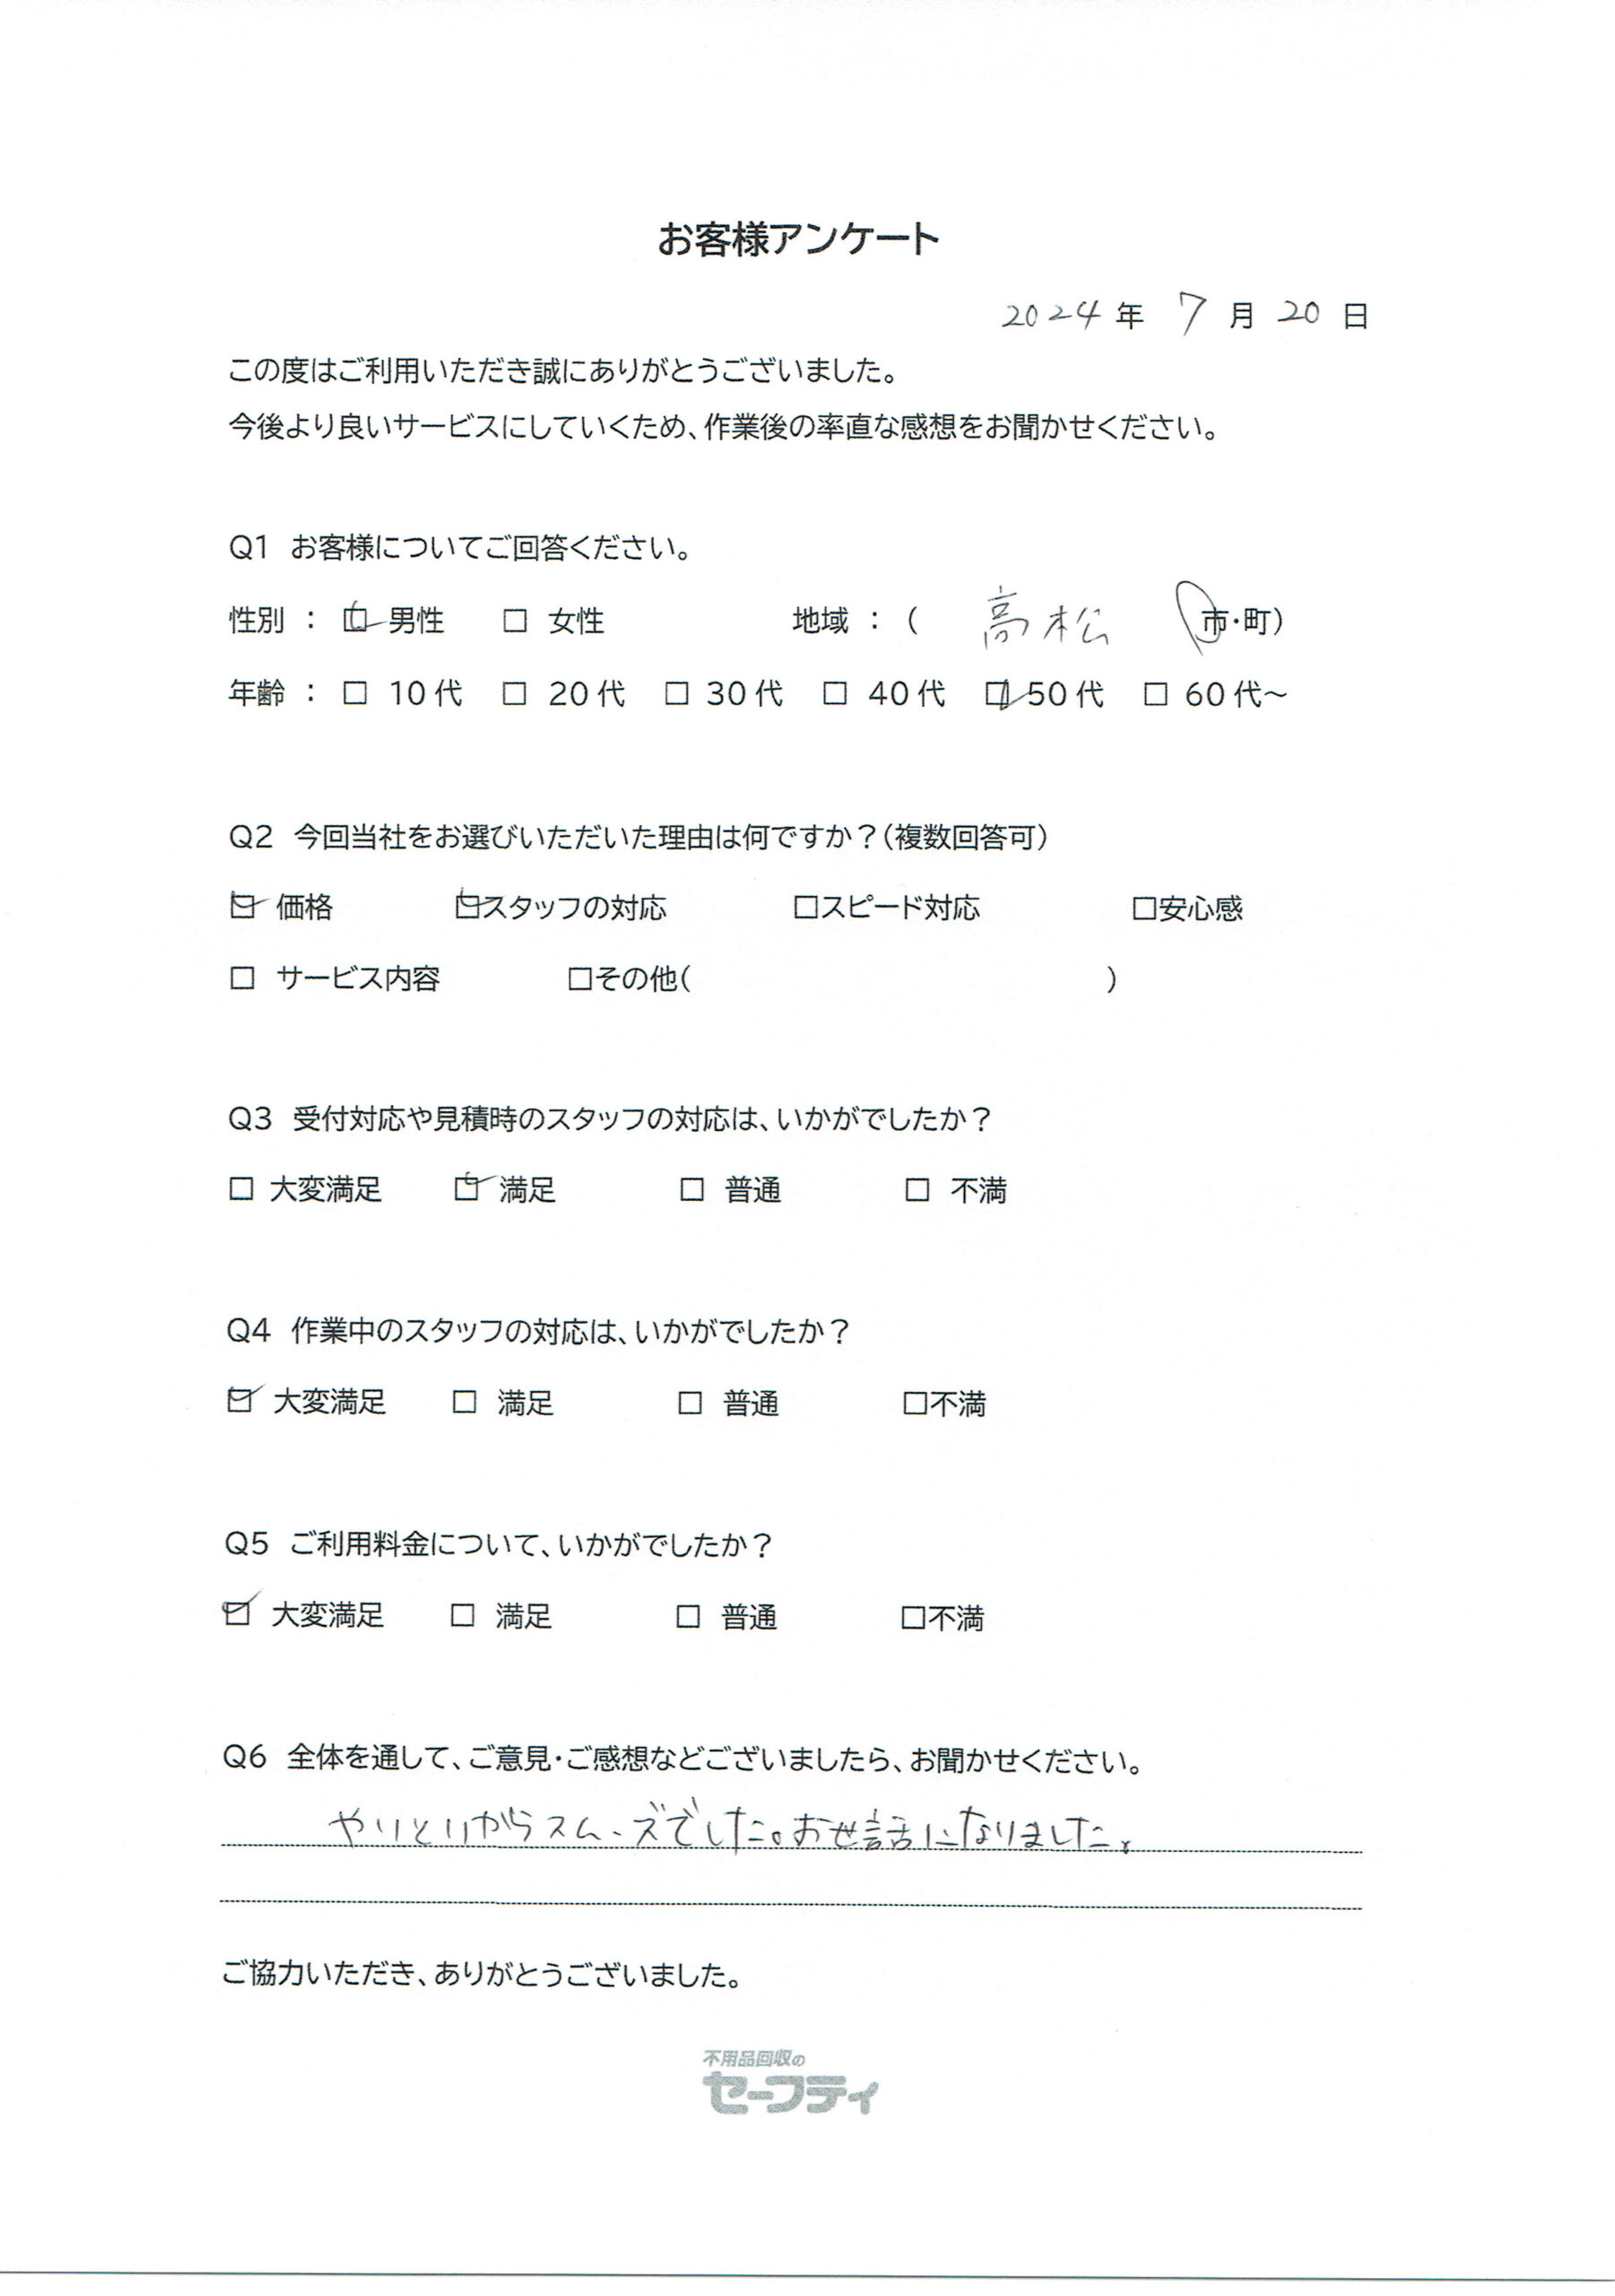 お客様アンケート
2024年 7月 20日
この度はご利用いただき誠にありがとうございました。
今後より良いサービスにしていくため、作業後の率直な感想をお聞かせください。
Q1 お客様についてご回答ください。
性別 : ☑ 男性 □ 女性 地域 : ( 高松 市・町)
年齢 : □ 10代 □ 20代 □ 30代 □ 40代 ☑ 50代 □ 60代~
Q2 今回当社をお選びいただいた理由は何ですか?(複数回答可)
☑ 価格 ☑スタッフの対応 □スピード対応 □安心感
□ サービス内容 □その他( )
Q3 受付対応や見積時のスタッフの対応は、いかがでしたか?
□ 大変満足 ☑ 満足 □ 普通 □ 不満
Q4 作業中のスタッフの対応は、いかがでしたか?
☑ 大変満足 □ 満足 □ 普通 □不満
Q5 ご利用料金について、いかがでしたか?
☑ 大変満足 □ 満足 □ 普通 □不満
Q6 全体を通して、ご意見・ご感想などございましたら、お聞かせください。
やりとりからスムーズでした。お世話になりました。
ご協力いただき、ありがとうございました。
不用品回収の
セーフティ